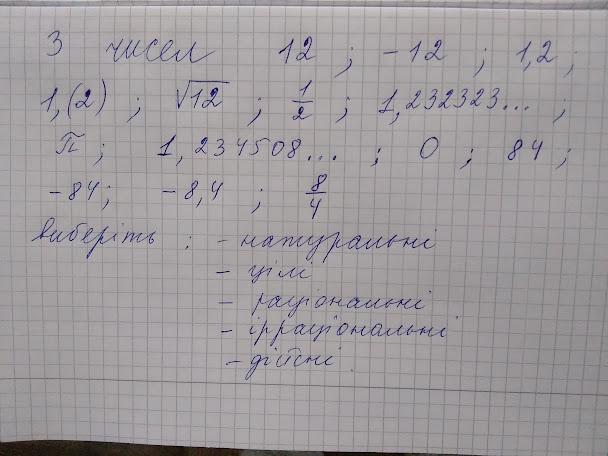 З чисел 12 ; -12 ; 1,2 ;
1,(2) ; √12 ; 1/2 ; 1,232323... ;
π ; 1,234508... ; 0 ; 84 ;
-84; -8,4 ; 8/4
виберіть : - натуральні
- цілі
- раціональні
- ірраціональні
- дійсні